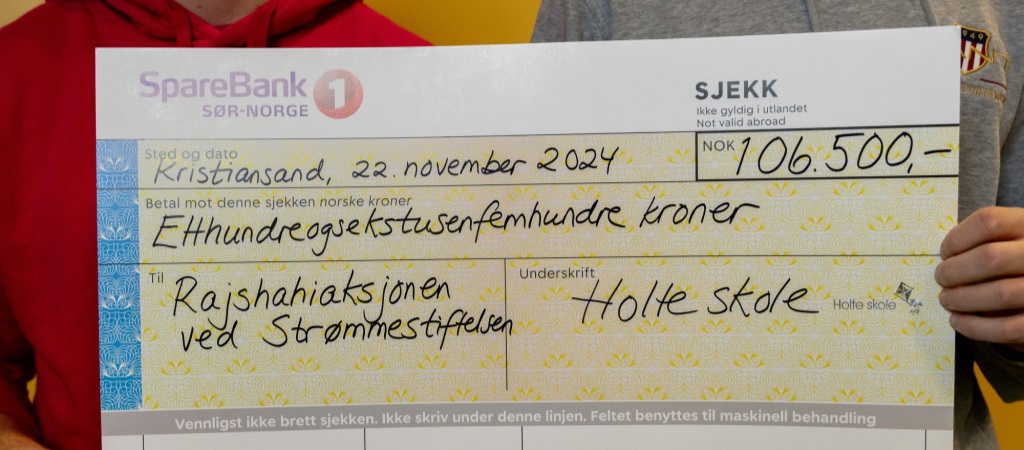 SpareBank 1
SØR-NORGE
SJEKK
Ikke gyldig i utlandet
Not valid abroad
Sted og dato
Kristiansand, 22. november 2024
NOK 106.500,-
Betal mot denne sjekken norske kroner
Etthundreogsekstusenfemhundre kroner
Til
Rajshahiaksjonen
ved Strømmestiftelsen
Underskrift
Holte skole
Holte skole
Vennligst ikke brett sjekken. Ikke skriv under denne linjen. Feltet benyttes til maskinell behandling